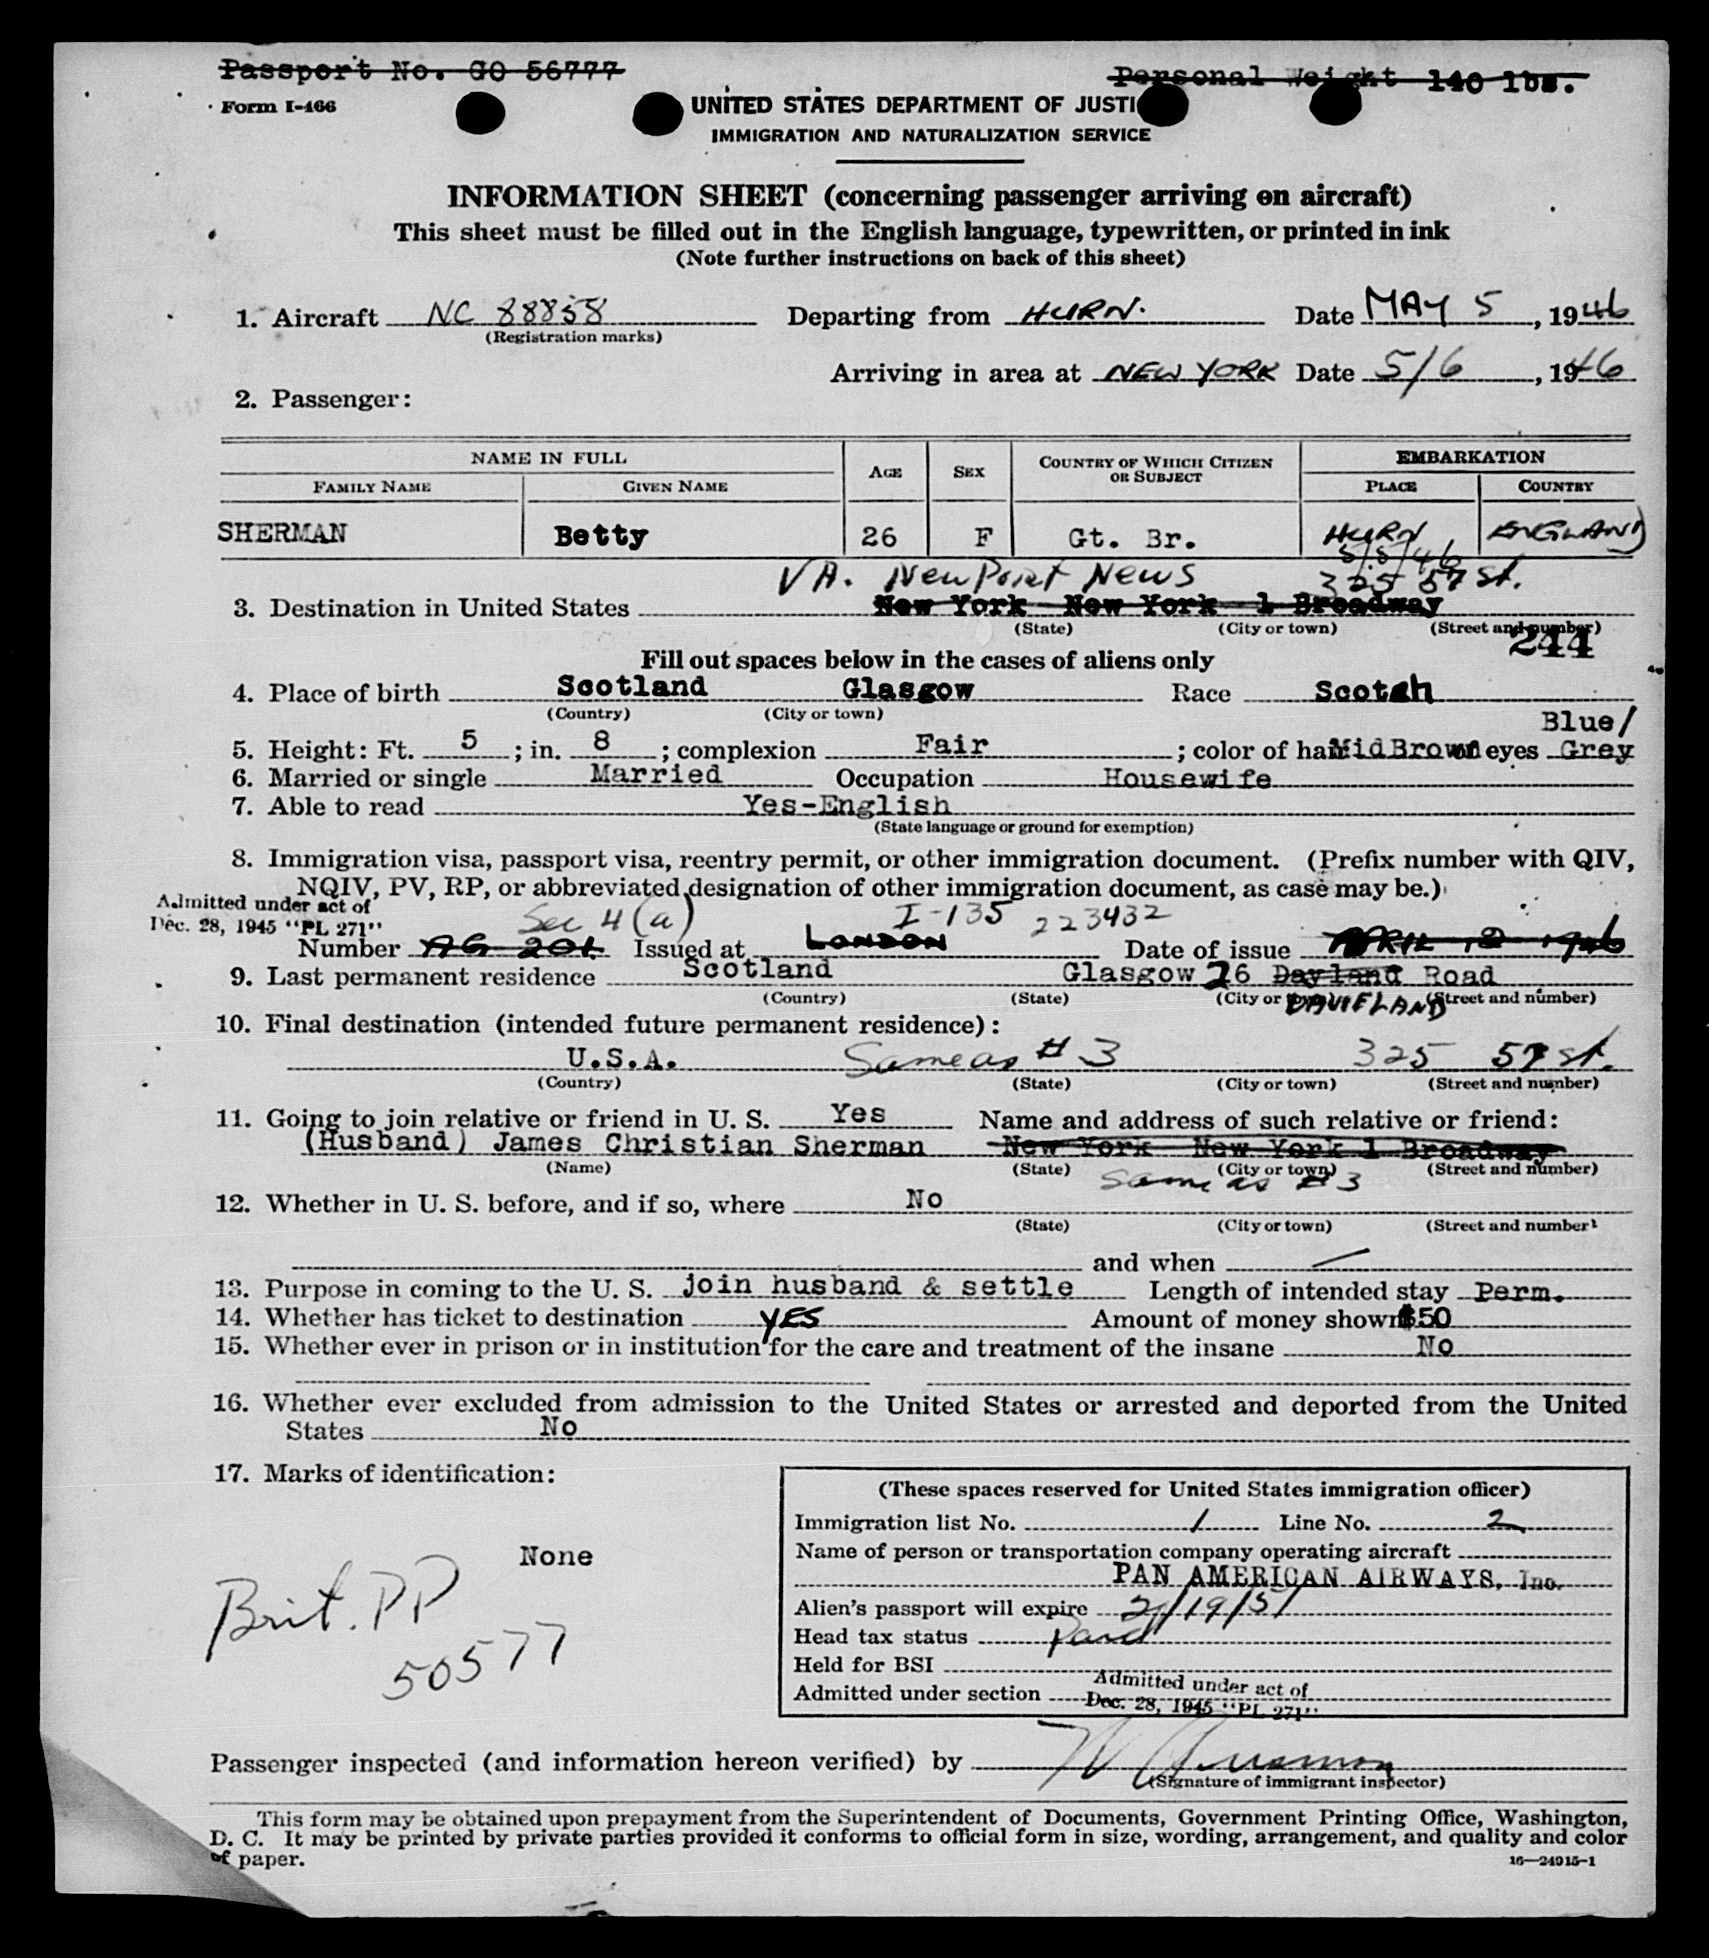 Passport No. GO 56777
Personal Weight 140 lbs.
Form I-466
UNITED STATES DEPARTMENT OF JUSTI
IMMIGRATION AND NATURALIZATION SERVICE
INFORMATION SHEET (concerning passenger arriving on aircraft)
This sheet must be filled out in the English language, typewritten, or printed in ink
(Note further instructions on back of this sheet)
1. Aircraft NC 88858 Departing from HURN. Date MAY 5, 1946
(Registration marks)
Arriving in area at NEW YORK Date 5/6, 1946
2. Passenger:
NAME IN FULL AGE SEX COUNTRY OF WHICH CITIZEN OR SUBJECT EMBARKATION
FAMILY NAME GIVEN NAME PLACE COUNTRY
SHERMAN Betty 26 F Gt. Br. HURN ENGLAND
5/5/46
VA. New Port News 325 57 St.
3. Destination in United States New York New York 1 Broadway
(State) (City or town) (Street and number)
244
Fill out spaces below in the cases of aliens only
4. Place of birth Scotland Glasgow Race Scotch
(Country) (City or town)
Blue/
5. Height: Ft. 5; in. 8; complexion Fair; color of hair MidBrown eyes Grey
6. Married or single Married Occupation Housewife
7. Able to read Yes-English
(State language or ground for exemption)
8. Immigration visa, passport visa, reentry permit, or other immigration document. (Prefix number with QIV,
NQIV, PV, RP, or abbreviated designation of other immigration document, as case may be.)
Admitted under act of
Dec. 28, 1945 "PL 271"
Sec 4(a) I-135 223432
Number AG 201. Issued at LONDON Date of issue APRIL 12 1946
9. Last permanent residence Scotland Glasgow 26 Dayland Road
(Country) (State) (City or town) (Street and number)
DAVIELAND
10. Final destination (intended future permanent residence):
U.S.A. Same as # 3 325 57 St.
(Country) (State) (City or town) (Street and number)
11. Going to join relative or friend in U. S. Yes Name and address of such relative or friend:
(Husband) James Christian Sherman New York New York 1 Broadway
(Name) (State) (City or town) (Street and number)
Same as # 3
12. Whether in U. S. before, and if so, where No
(State) (City or town) (Street and number)
and when
13. Purpose in coming to the U. S. join husband & settle Length of intended stay Perm.
14. Whether has ticket to destination YES Amount of money shown $50
15. Whether ever in prison or in institution for the care and treatment of the insane No
16. Whether ever excluded from admission to the United States or arrested and deported from the United
States No
17. Marks of identification:
None
Brit. PP
50577
(These spaces reserved for United States immigration officer)
Immigration list No. 1 Line No. 2
Name of person or transportation company operating aircraft
PAN AMERICAN AIRWAYS, Inc.
Alien's passport will expire 2/19/51
Head tax status Paid
Held for BSI
Admitted under section Admitted under act of
Dec. 28, 1945 "PL 271"
Passenger inspected (and information hereon verified) by
(Signature of immigrant inspector)
This form may be obtained upon prepayment from the Superintendent of Documents, Government Printing Office, Washington,
D. C. It may be printed by private parties provided it conforms to official form in size, wording, arrangement, and quality and color
of paper.
16—24915-1